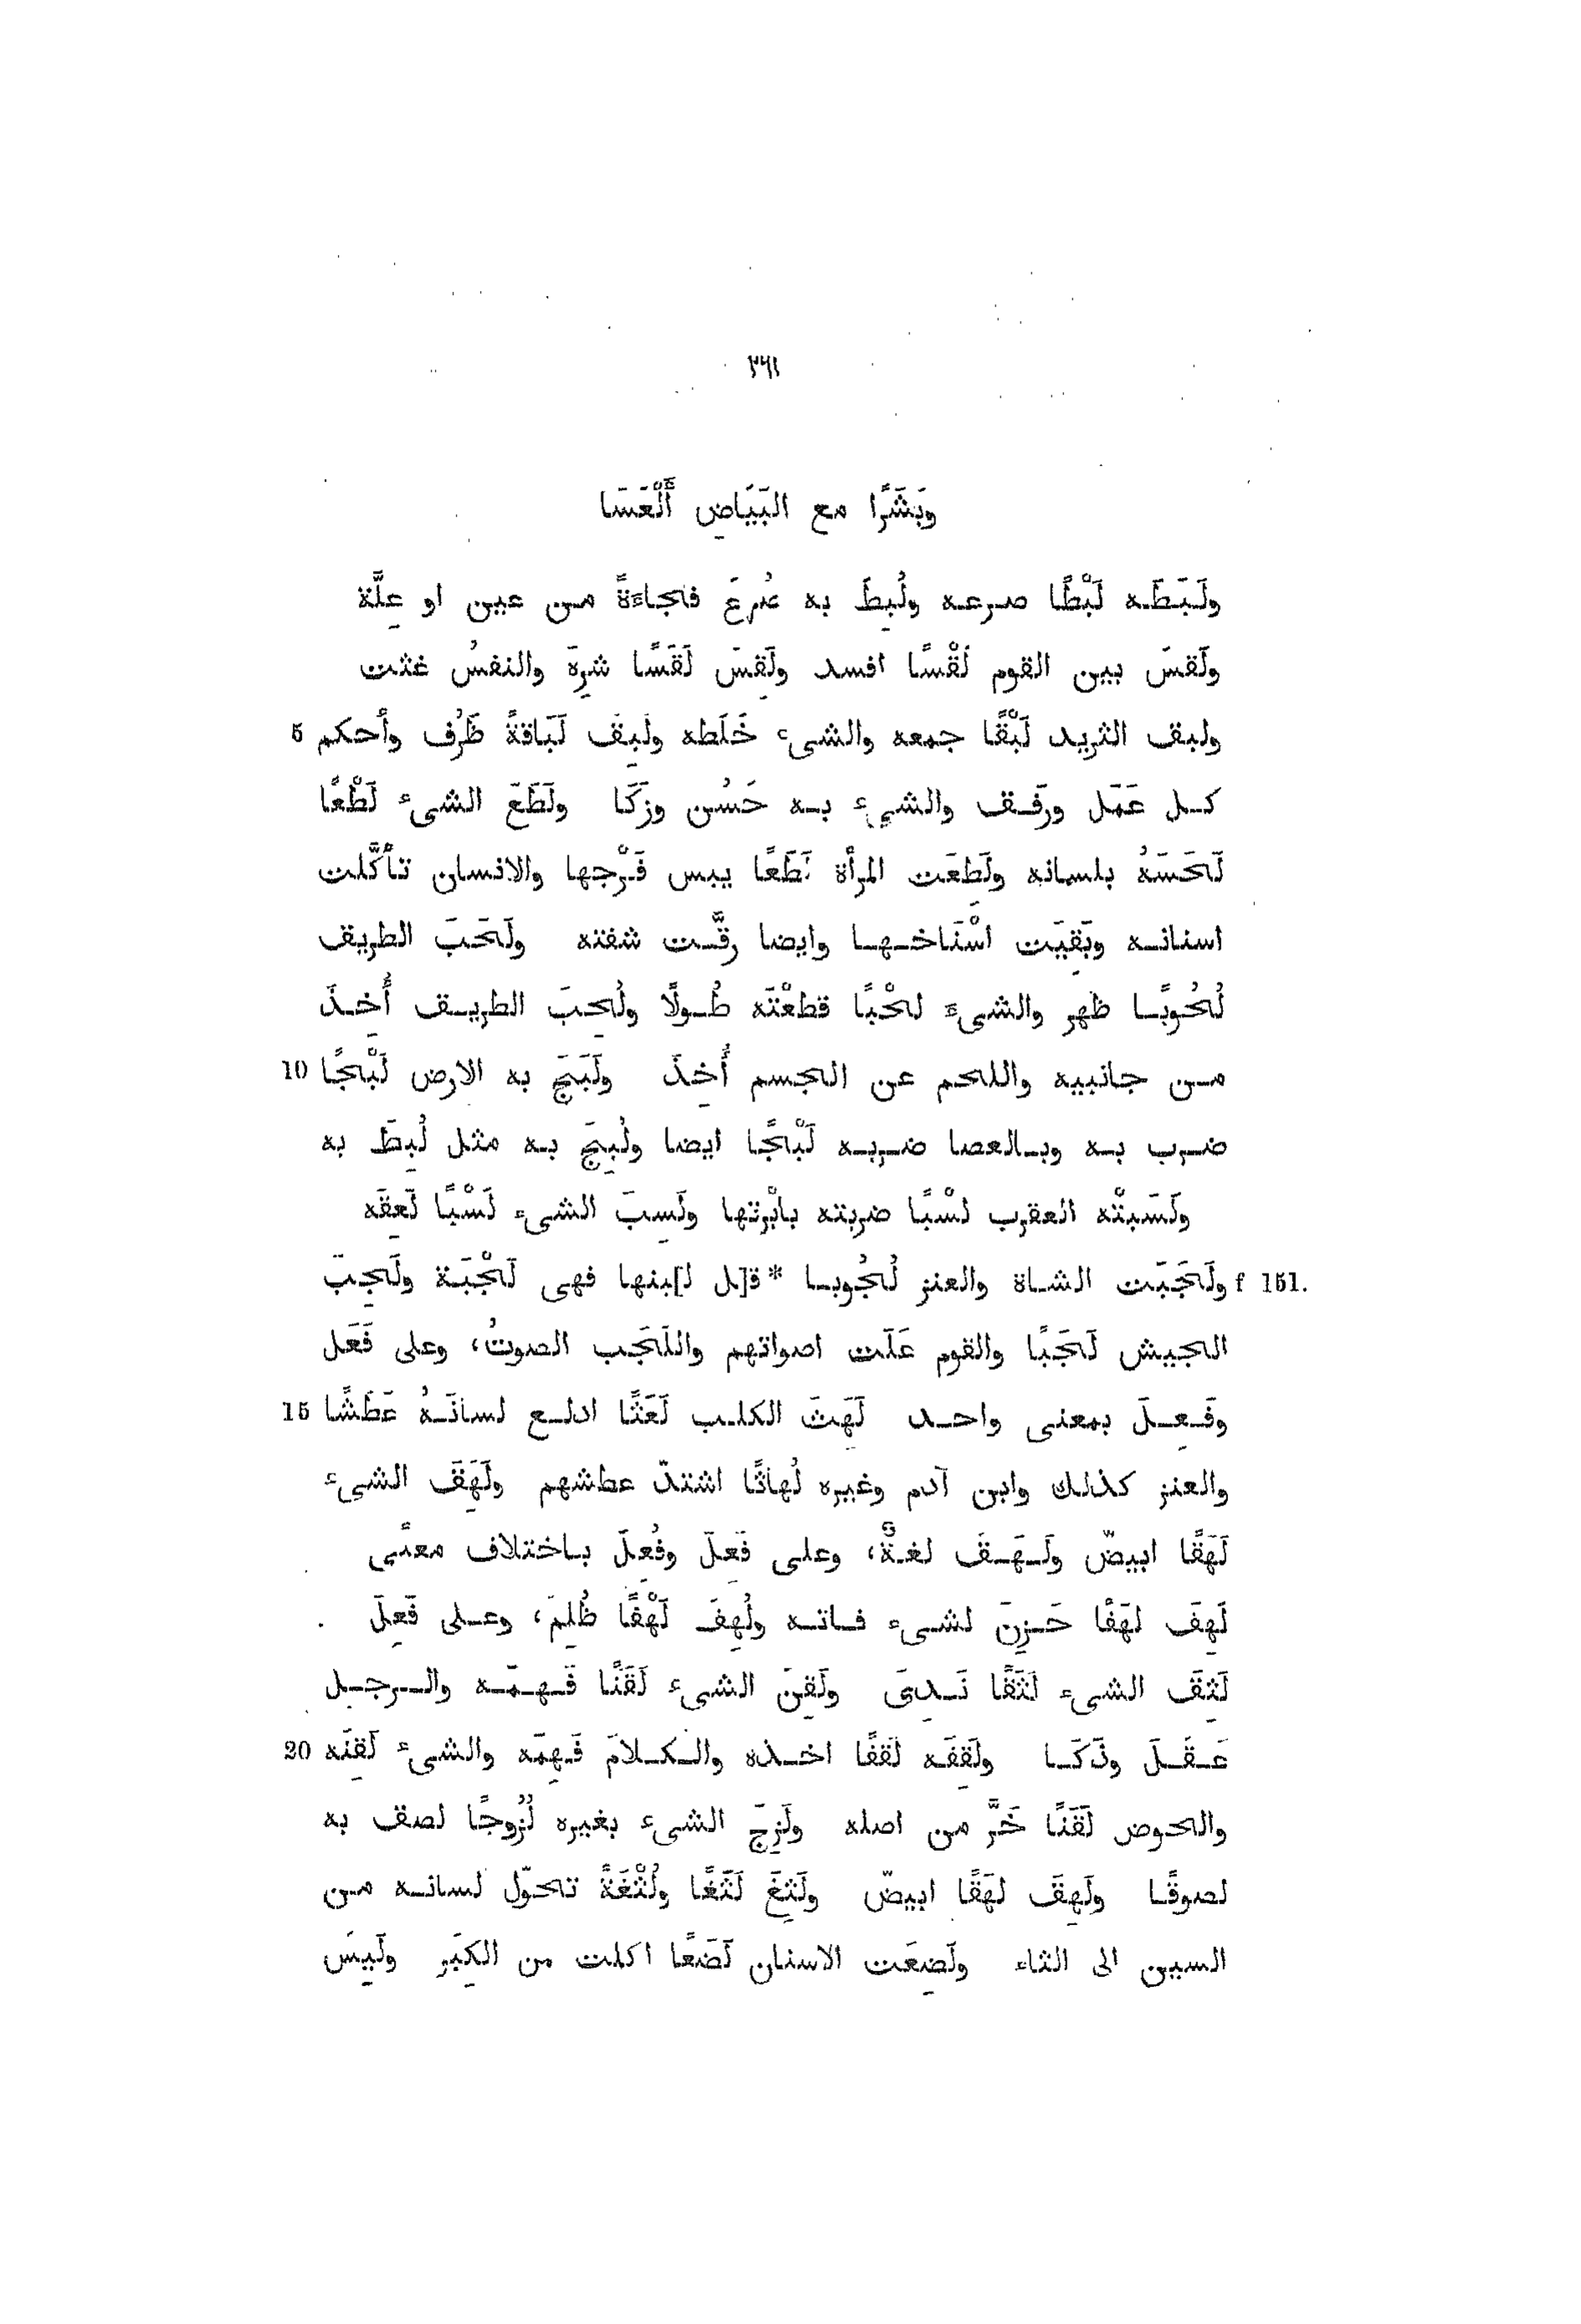 ٣٦١
وبَشَرًا مع البَيَاضِ أَلْعَسَا
ولَبَطَه لَبْطًا صرعه ولُبِطَ به صُرِعَ فاجاءةً من عين او عِلَّة
ولَقسَ بين القوم لَقْسًا افسد ولَقِسَ لَقَسًا شرِهَ والنفسُ غثت
ولبق الثريد لَبْقًا جمعه والشىء خَلَطه ولَبِقَ لَبَاقةً ظَرُف وأحكم 5
كل عَمَل ورَفَق والشىء به حَسُن وزَكَا ولَطَعَ الشىء لَطْعًا
لَحَسَهُ بلسانه ولَطِعَت المرأة لَطَعًا يبس فَرْجها والانسان تأكَّلت
اسنانه وبَقِيَت اسْنَاخها وايضا رقَّت شفته ولَحَبَ الطريق
لُحُوبًا ظهر والشىءَ لحْبًا قطعْتَه طُولًا ولُحِبَ الطريق أُخِذَ
من جانبيه واللحم عن الجسم أُخِذَ ولَبَجَ به الارض لَبْجًا 10
ضرب به وبالعصا ضربه لَبْجًا ايضا ولُبِجَ به مثل لُبِطَ به
ولَسَبتْه العقرب لسْبًا ضربته بابْرتها ولَسِبَ الشىء لَسْبًا لَعِقَه
f 151. ولَجَبَت الشاة والعنز لُجُوبا *ق[ل ل]بنها فهى لَجْبَة ولَجِبَ
الجيش لَجَبًا والقوم عَلَت اصواتهم واللَجَب الصوتُ، وعلى فَعَل
وفَعِلَ بمعنى واحد لَهَثَ الكلب لَهَثًا ادلع لسانَهُ عَطَشًا 15
والعنز كذلك وابن آدم وغيره لُهاثًا اشتدّ عطشهم ولَهِقَ الشىء
لَهَقًا ابيضّ ولَهَقَ لغةٌ، وعلى فَعِلَ وفُعِلَ باختلاف معنًى
لَهِفَ لهَفًا حَزِنَ لشىء فاته ولُهِفَ لَهْفًا ظُلِمَ، وعلى فَعِلَ
لَثِقَ الشىء لَثَقًا نَدِىَ ولَقِنَ الشىء لَقَنًا فَهِمَه والرجل
عَقَلَ وذَكَا ولَقِفَه لَقفًا اخذه والكلامَ فَهِمَه والشىء لَقِنَه 20
والحوض لَقَفًا خَرَّ من اصله ولَزِجَ الشىء بغيره لُزُوجًا لصق به
لصوقًا ولَهِقَ لهَقًا ابيضّ ولَثِغَ لَثَغًا ولُثْغَةً تحوّل لسانه من
السين الى الثاء ولَضِعَت الاسنان لَضَعًا اكلت من الكِبَرِ ولَبِسَ